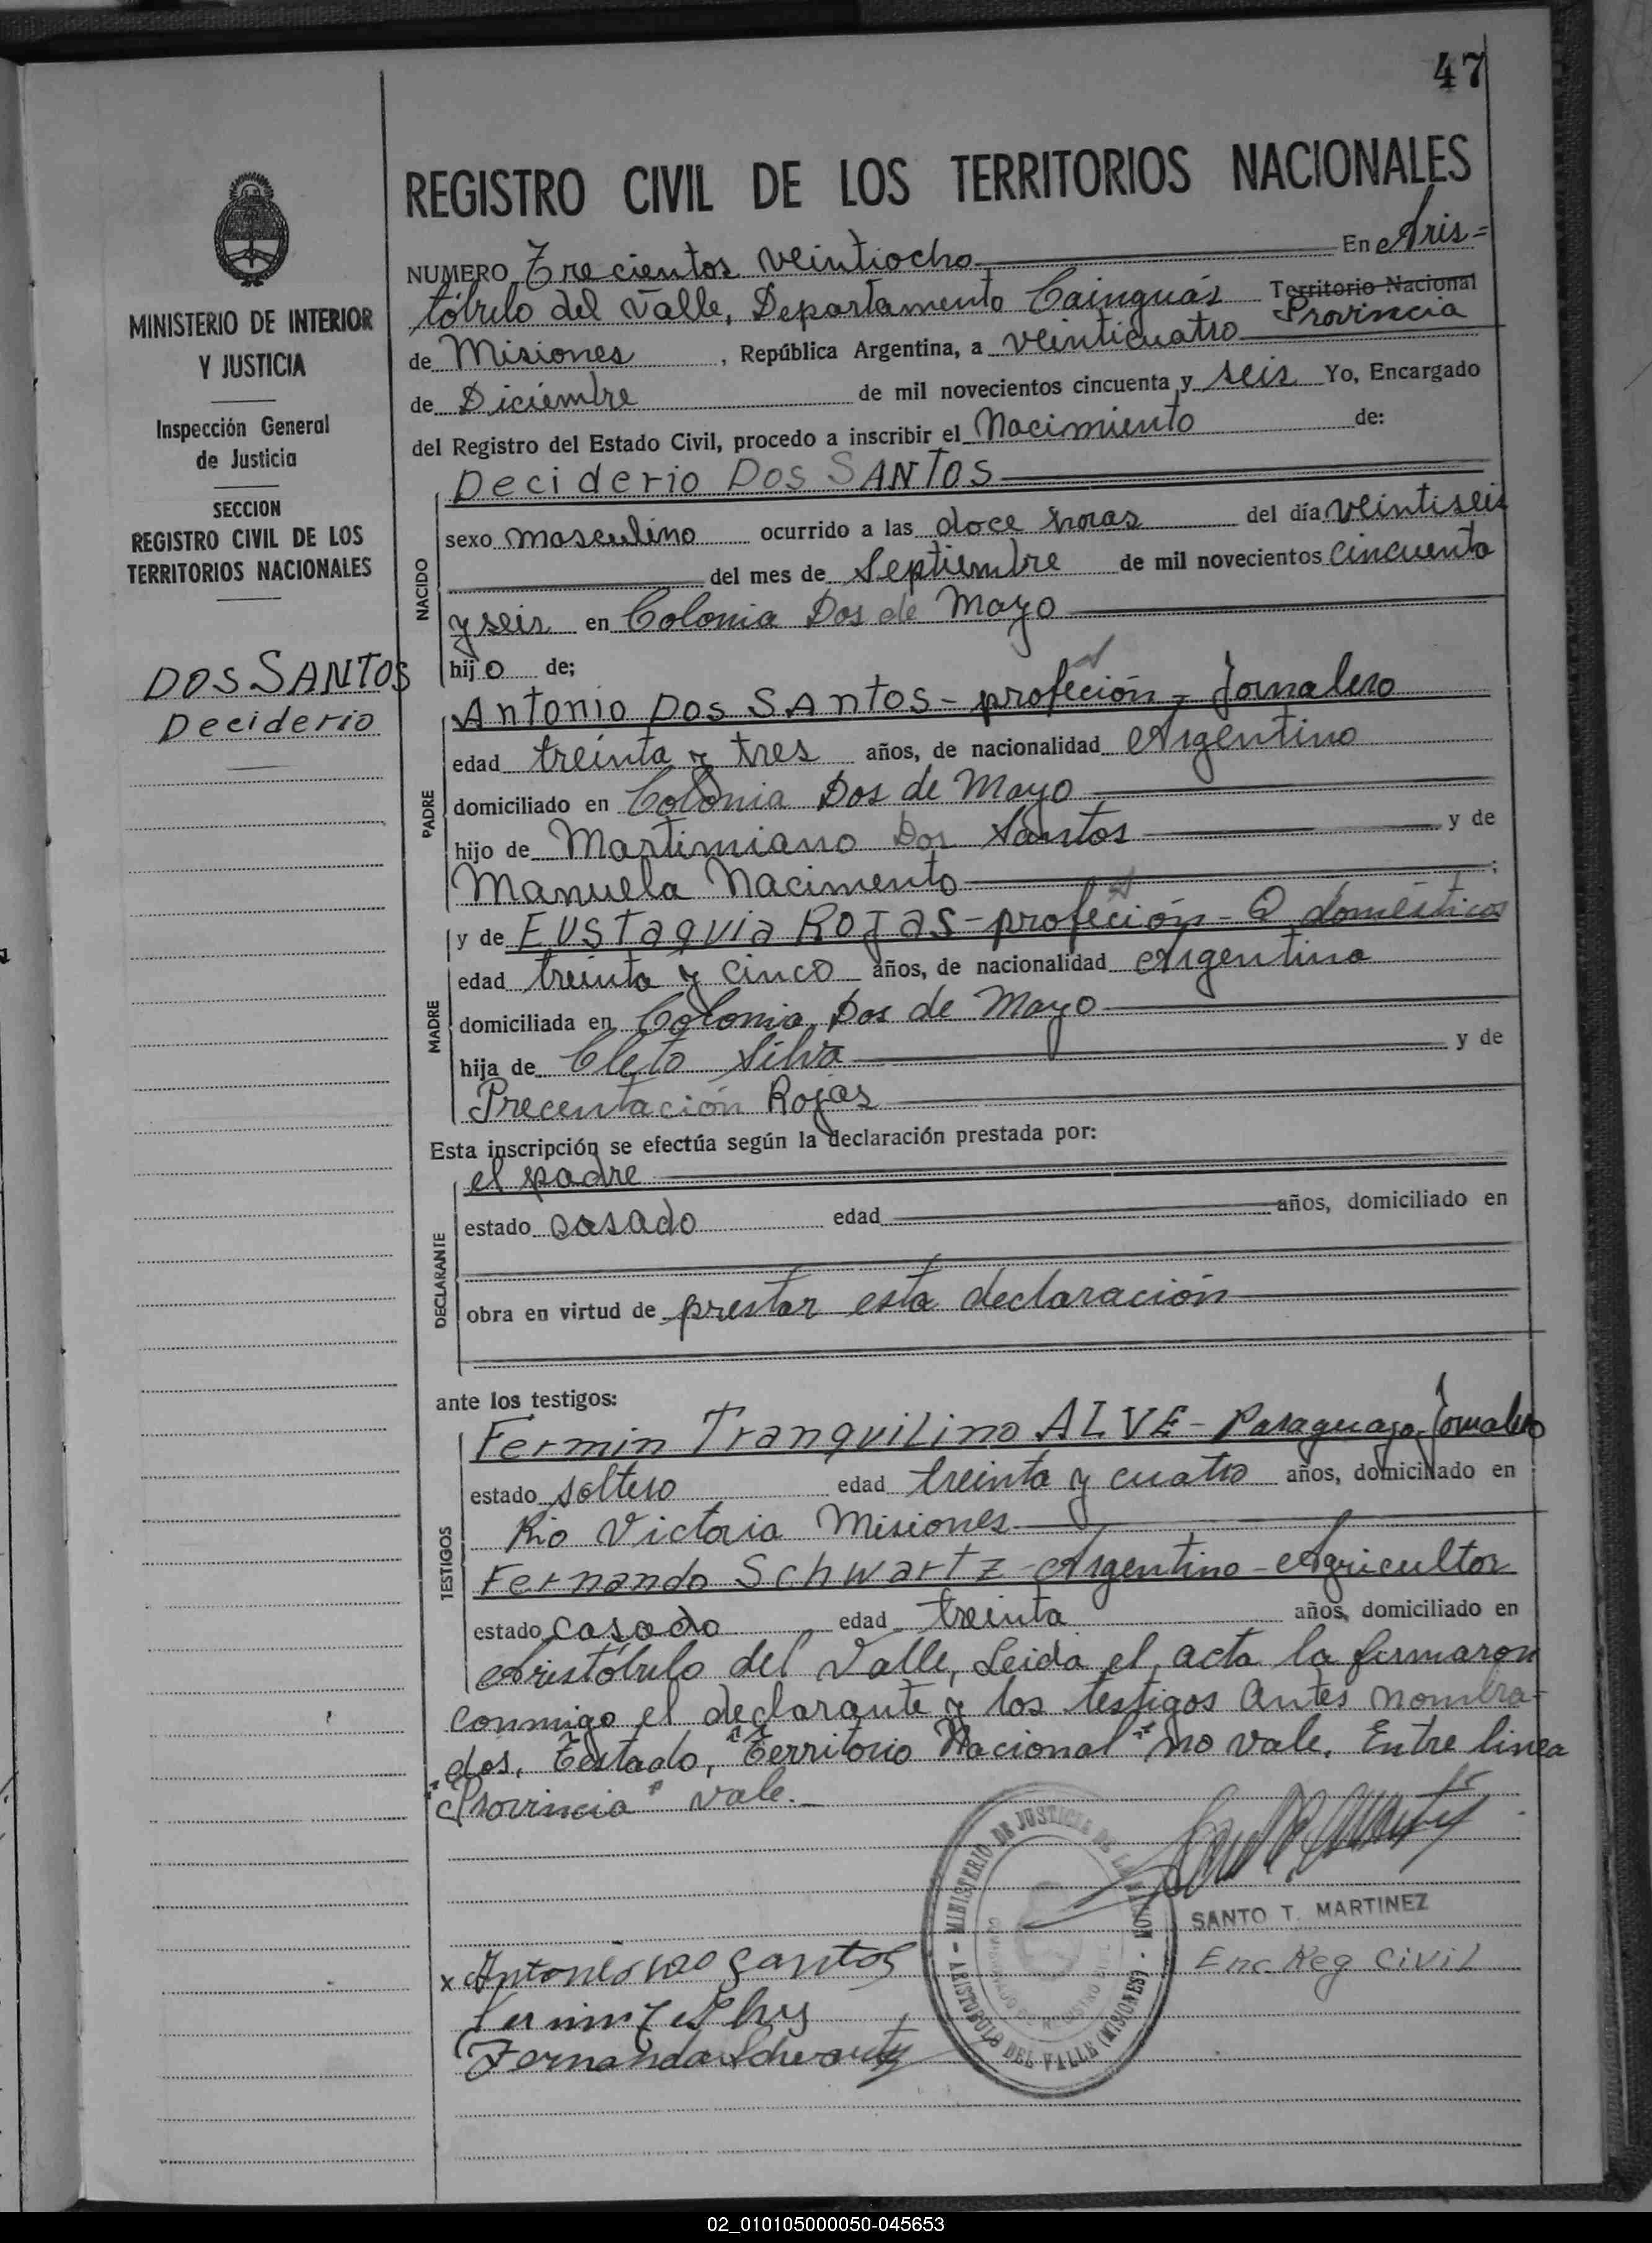 47
REGISTRO CIVIL DE LOS TERRITORIOS NACIONALES
MINISTERIO DE INTERIOR
Y JUSTICIA
Inspección General
de Justicia
SECCION
REGISTRO CIVIL DE LOS
TERRITORIOS NACIONALES
DOS SANTOS
Deciderio
NUMERO Trecientos veintiocho En Aris=
tóbulo del Valle, Departamento Cainguás Territorio Nacional
Provincia
de Misiones , República Argentina, a veinticuatro
de Diciembre de mil novecientos cincuenta y seis Yo, Encargado
del Registro del Estado Civil, procedo a inscribir el Nacimiento de:
NACIDO
Deciderio Dos SANTOS
sexo masculino ocurrido a las doce horas del día veintiseis
del mes de Septiembre de mil novecientos cincuenta
y seis en Colonia Dos de Mayo
hijo de;
PADRE
Antonio Dos SANtos - profeción - Jornalero
edad treinta y tres años, de nacionalidad Argentino
domiciliado en Colonia Dos de Mayo
hijo de Martimiano Dos Santos y de
Manuela Nacimento ;
MADRE
y de EUSTaquia ROJas - profeción - Q domésticos
edad treinta y cinco años, de nacionalidad Argentina
domiciliada en Colonia Dos de Mayo
hija de Cleto Silva y de
Precentación Rojas
Esta inscripción se efectúa según la declaración prestada por:
DECLARANTE
el padre
estado casado edad años, domiciliado en
obra en virtud de prestar esta declaración
ante los testigos:
TESTIGOS
Fermin Tranquilino ALVE - Paraguayo, Jornalero
estado soltero edad treinta y cuatro años, domiciliado en
Rio Victoria Misiones
Fernando Schwartz - Argentino - Agricultor
estado casado edad treinta años, domiciliado en
Aristóbulo del Valle, Leida el acta la firmaron
conmigo el declarante y los testigos antes nombra-
dos, Testado, "Territorio Nacional" no vale. Entre linea
"Provincia" vale.-
MINISTERIO DE JUSTICIA DE LA NACION
ARISTOBULO DEL VALLE (MISIONES)
SANTO T. MARTINEZ
Enc Reg Civil
x Antonio dos Santos
Fernando Schwartz
02_010105000050-045653